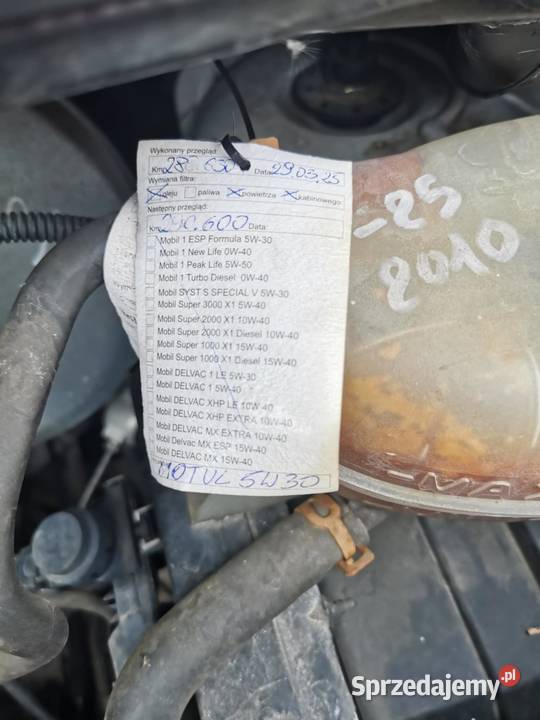 Wykonany przegląd:
Km 630 Data 29.03.25
Wymiana filtra:
oleju paliwa powietrza kabinowego
Następny przegląd:
Km 290.600 Data:
Mobil 1 ESP Formula 5W-30
Mobil 1 New Life 0W-40
Mobil 1 Peak Life 5W-50
Mobil 1 Turbo Diesel 0W-40
Mobil SYST S SPECIAL V 5W-30
Mobil Super 3000 X1 5W-40
Mobil Super 2000 X1 10W-40
Mobil Super 2000 X1 Diesel 10W-40
Mobil Super 1000 X1 15W-40
Mobil Super 1000 X1 Diesel 15W-40
Mobil DELVAC 1 LE 5W-30
Mobil DELVAC 1 5W-40
Mobil DELVAC XHP LE 10W-40
Mobil DELVAC XHP EXTRA 10W-40
Mobil DELVAC MX EXTRA 10W-40
Mobil Delvac MX ESP 15W-40
Mobil DELVAC MX 15W-40
MOTUL 5W30
-25
2010
Sprzedajemy.pl